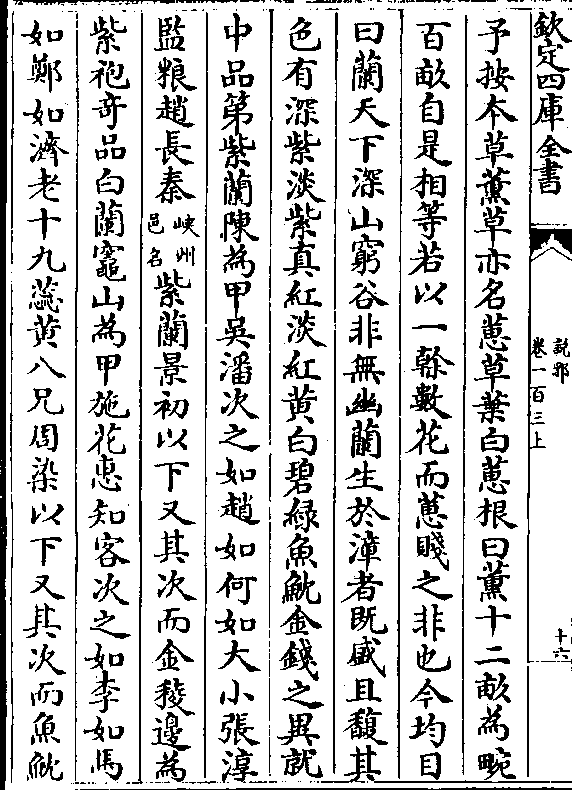 欽定四庫全書
說郛
卷一百三上
十六
予按本草薰草亦名蕙草葉曰蕙根曰薰十二畝為畹
百畝自是相等若以一榦數花而蕙賤之非也今均目
曰蘭天下深山窮谷非無幽蘭生於漳者既盛且馥其
色有深紫淡紫真紅淡紅黄白碧綠魚魫金錢之異就
中品第紫蘭陳為甲吳潘次之如趙如何如大小張淳
監粮趙長秦峽州邑名紫蘭景初以下又其次而金稜邊為
紫袍竒品白蘭竈山為甲施花惠知客次之如李如馬
如鄭如濟老十九蕊黄八兄周染以下又其次而魚魫